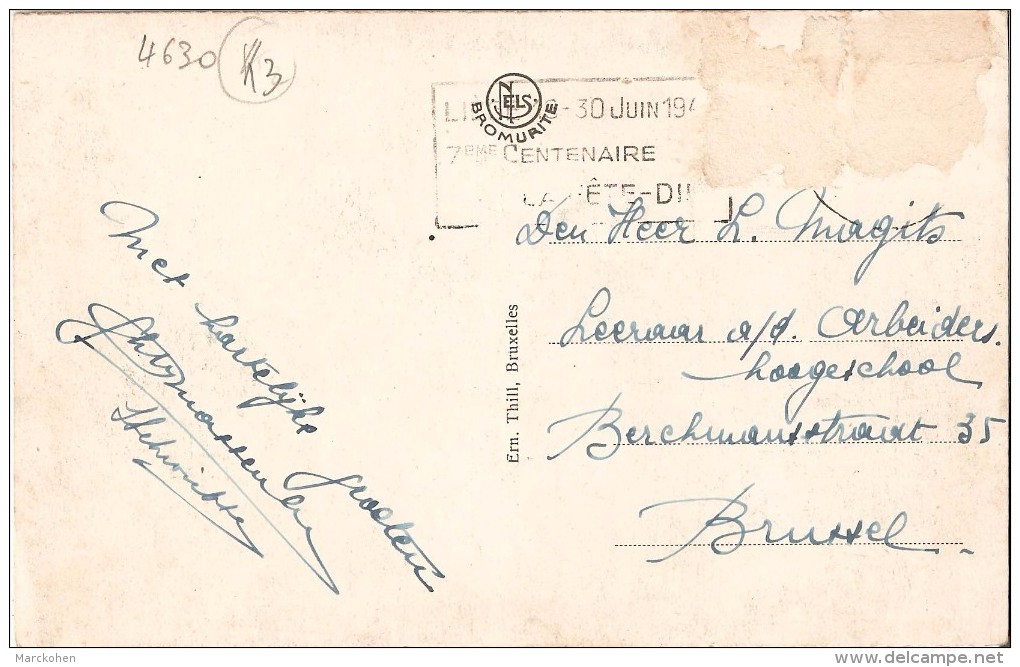 4630
K3
NELS
BROMURITE
- 30 JUIN 194
7EME CENTENAIRE
LA FÊTE-DI
Den Heer L. Magits
Leeraar a/d. Arbeiders.
hoogeschool
Berchmansstraat 35
Brussel
Met hartelijke groeten
Ern. Thill, Bruxelles
Marckohen
www.delcampe.net